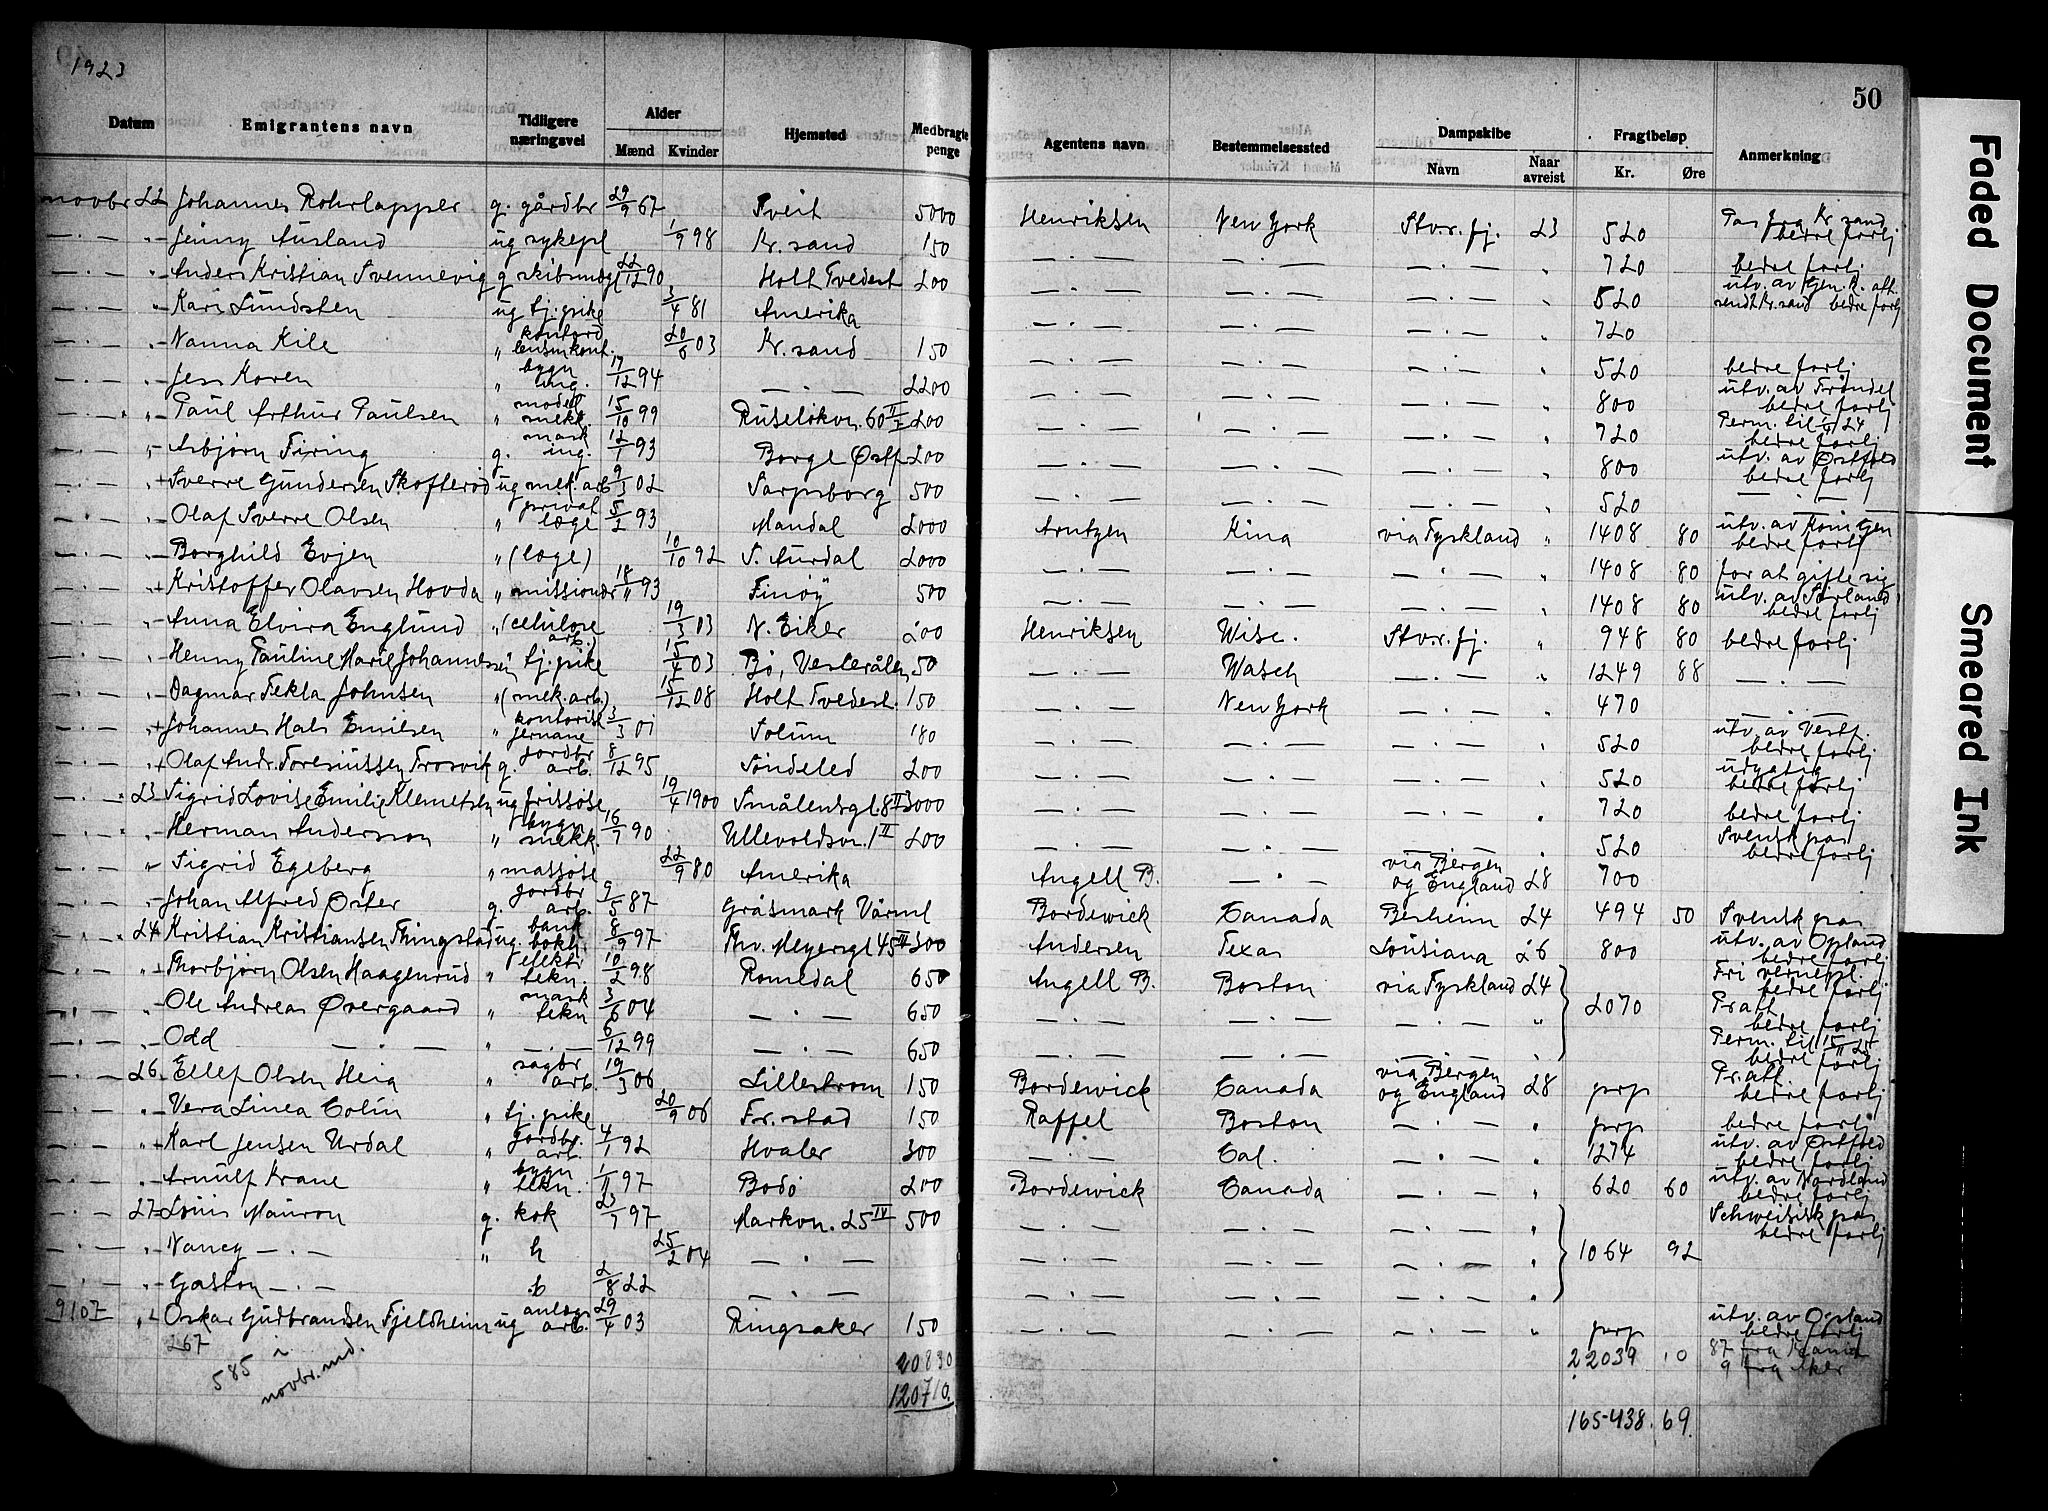 1923
50
Datum Emigrantens navn Tidligere næringsvei Alder Mænd Kvinder Hjemsted Medbragte penge Agentens navn Bestemmelsessted Dampskibe Navn Naar avreist Fragtbeløp Kr. Øre Anmerkning
novbr 22 Johannes Rohrlapper g. gårdbr 29/9 67 Tveit 5000 Henriksen New York Stvr. fj. 23 520 Pas fra Kr. sand bedre forhj
— . — „- Jenny Ausland ug sykepl 1/9 98 Kr. sand 150 — . — — . — — . — „ 720 bedre forhj
— . — „ Anders Kristian Svennevig g skibsmægl 22/12 90 Holt Tvedest 200 — . — — . — — . — „ 520 utv. av Kr. sand bedre forhj
— . — „ Kari Lundsten ug tj. pike 3/4 81 Amerika — . — — . — — . — „ 720
— . — „- Nanna Kile „ kontord 20/6 03 Kr. sand 150 — . — — . — — . — „ 520 bedre forhj
— . — „- Jess Koren „ bygn ing. 17/12 94 — . — 2200 — . — — . — — . — „ 800 utv. av Trøndel bedre forhj
— . — „- Paul Arthur Paulsen „ model snekk. 15/10 99 Ruseløkvn. 60 II 200 — . — — . — — . — „ 720 Perm. til 1/4 24 bedre forhj
— . — „ Asbjørn Firing g. mask ing. 12/1 93 Borge Østf 200 — . — — . — — . — „ 800 utv. av Østfold bedre forhj
— . — „+ Sverre Gundersen Skofterød ug mek. arb 9/3 02 Sarpsborg 500 — . — — . — — . — „ 520 — . —
— . — „ Olaf Sverre Olsen „ privat læge 5/2 93 Mandal 2000 Arntzen Kina via Tyskland „ 1408 80 utv. av bedre forhj
— . — „- Borghild Evjen „ (læge) 10/10 92 S. Aurdal 2000 — . — — . — — . — „ 1408 80 for at gifte sig
— . — „+ Kristoffer Olavsen Hovda „ missionær 18/„ 93 Finøy 500 — . — — . — — . — „ 1408 80 utv. av Sørland bedre forhj
— . — „- Anna Elvira Englund „ (celulose arb.) 19/3 03 N. Eiker 200 Henriksen Wisc. Stvr. fj. „ 948 80 bedre forhj
— . — „- Henny Pauline Marie Johannessen „ tj. pike 15/4 03 Bø, Vesterålen 50 — . — Wasch — . — „ 1249 88 — . —
— . — „- Dagmar Tekla Johnsen „ (mek. arb.) 15/12 08 Holt Tvedest. 150 — . — New York — . — „ 470 — . —
— . — „+ Johannes Hals Emilsen „ kontorist jernvane 3/3 01 Solum 180 — . — — . — — . — „ 520 utv. av Vestf. bedre forhj
— . — „+ Olaf Andr. Toresnussen Trosvik g. jordbr arb. 8/12 95 Søndeled 200 — . — — . — — . — „ 520 udygtig bedre forhj
— . — 23 Sigrid Lovise Emilie Klemetsen ug frissøse 19/4 1900 Smålensgt. 8 II 3000 — . — — . — — . — „ 720 bedre forhj
— . — „- Herman Andersson „ bygn snekk. 16/7 90 Ullevoldsvn. 1 II 200 — . — — . — — . — „ 520 Svensk pas bedre forhj
— . — „ Sigrid Egeberg „ massøse 22/9 80 Amerika Angell B. — . — via Bergen og England 28 700
— . — „- Johan Alfred Öster g. jordbr arb. 9/5 87 Gräsmark Värml Bordewick Canada Bergheim 24 494 50 Svensk pas
— . — 24 Kristian Kristiansen Thingstad ug. bank bokh. 8/9 97 Thv. Meyersgt 45 III 300 Andersen Texas Louisiana 26 800 utv. av Opland bedre forhj
— . — „+ Thorbjørn Olsen Haagenrud „ elektr tekn. 10/2 98 Romedal 650 Angell B. Boston via Tyskland 24 Fri vernepl. bedre forhj
— . — „- Ole Andreas Øvergaard „ mask tekn 3/6 04 — . — 650 — . — — . — — . — „ 2070 Pr att bedre forhj
— . — „- Odd — . — „ — . — 6/12 99 — . — 650 — . — — . — — . — Perm. til 15/11 25 bedre forhj
— . — 26 Ellef Olsen Heia „ sagbr arb. 19/3 06 Lillestrøm 150 Bordewick Canada via Bergen og England 28 prp Pr. att bedre forhj
— . — „- Vera Linea Colin „ tj. pike 20/9 06 Fr. stad 150 Raffel Boston — . — „ prp bedre forhj
— . — „- Karl Jensen Urdal „ jordbr. arb. 4/1 92 Hvaler 300 — . — Cal. — . — „ 1274 utv. av Østfold bedre forhj
— . — „- Arnulf Krane „ bygn tekn. 1/11 97 Bodø 200 Bordewick Canada — . — „ 620 60 utv. av Nordland bedre forhj
— . — 27 Louis Mauron g. kok 23/7 97 Markvn. 25 IV 500 — . — — . — — . — „ Schweitisk pas bedre forhj
— . — „- Nancy — . — „ h 25/2 04 — . — — . — — . — — . — „ 1064 92
— . — „- Gaston — . — b 2/8 22 — . — — . — — . — — . — „
9107 „ Oskar Gudbrandsen Fjeldheim ug anlegs arb. 29/4 03 Ringsaker 150 — . — — . — — . — „ prp utv. av Opland bedre forhj
267
585 i novbr. md.
20830
120710.
22039 10
165-438. 69.
87 fra Krania
9 fra Aker
Faded Document
Smeared Ink